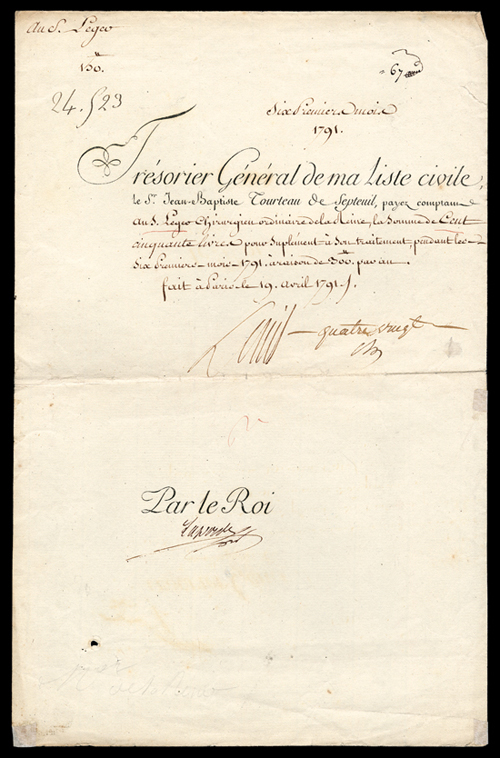 Au S. Legeo
150.
67
24. 523
Six Premiers mois
1791.
Trésorier Général de ma Liste civile,
le Sr. Jean-Baptiste Tourteau de Septeuil, payez comptant
Au S. Legeo Chirurgien ordinaire de la Reine, la Somme de Cent
cinquante livres pour Suplément à Son traitement, pendant les
Six Premiers mois 1791. à raison de 300.tt par an.
fait à Paris le 19. Avril 1791.
Louis quatre vingt
Par le Roi
Laporte